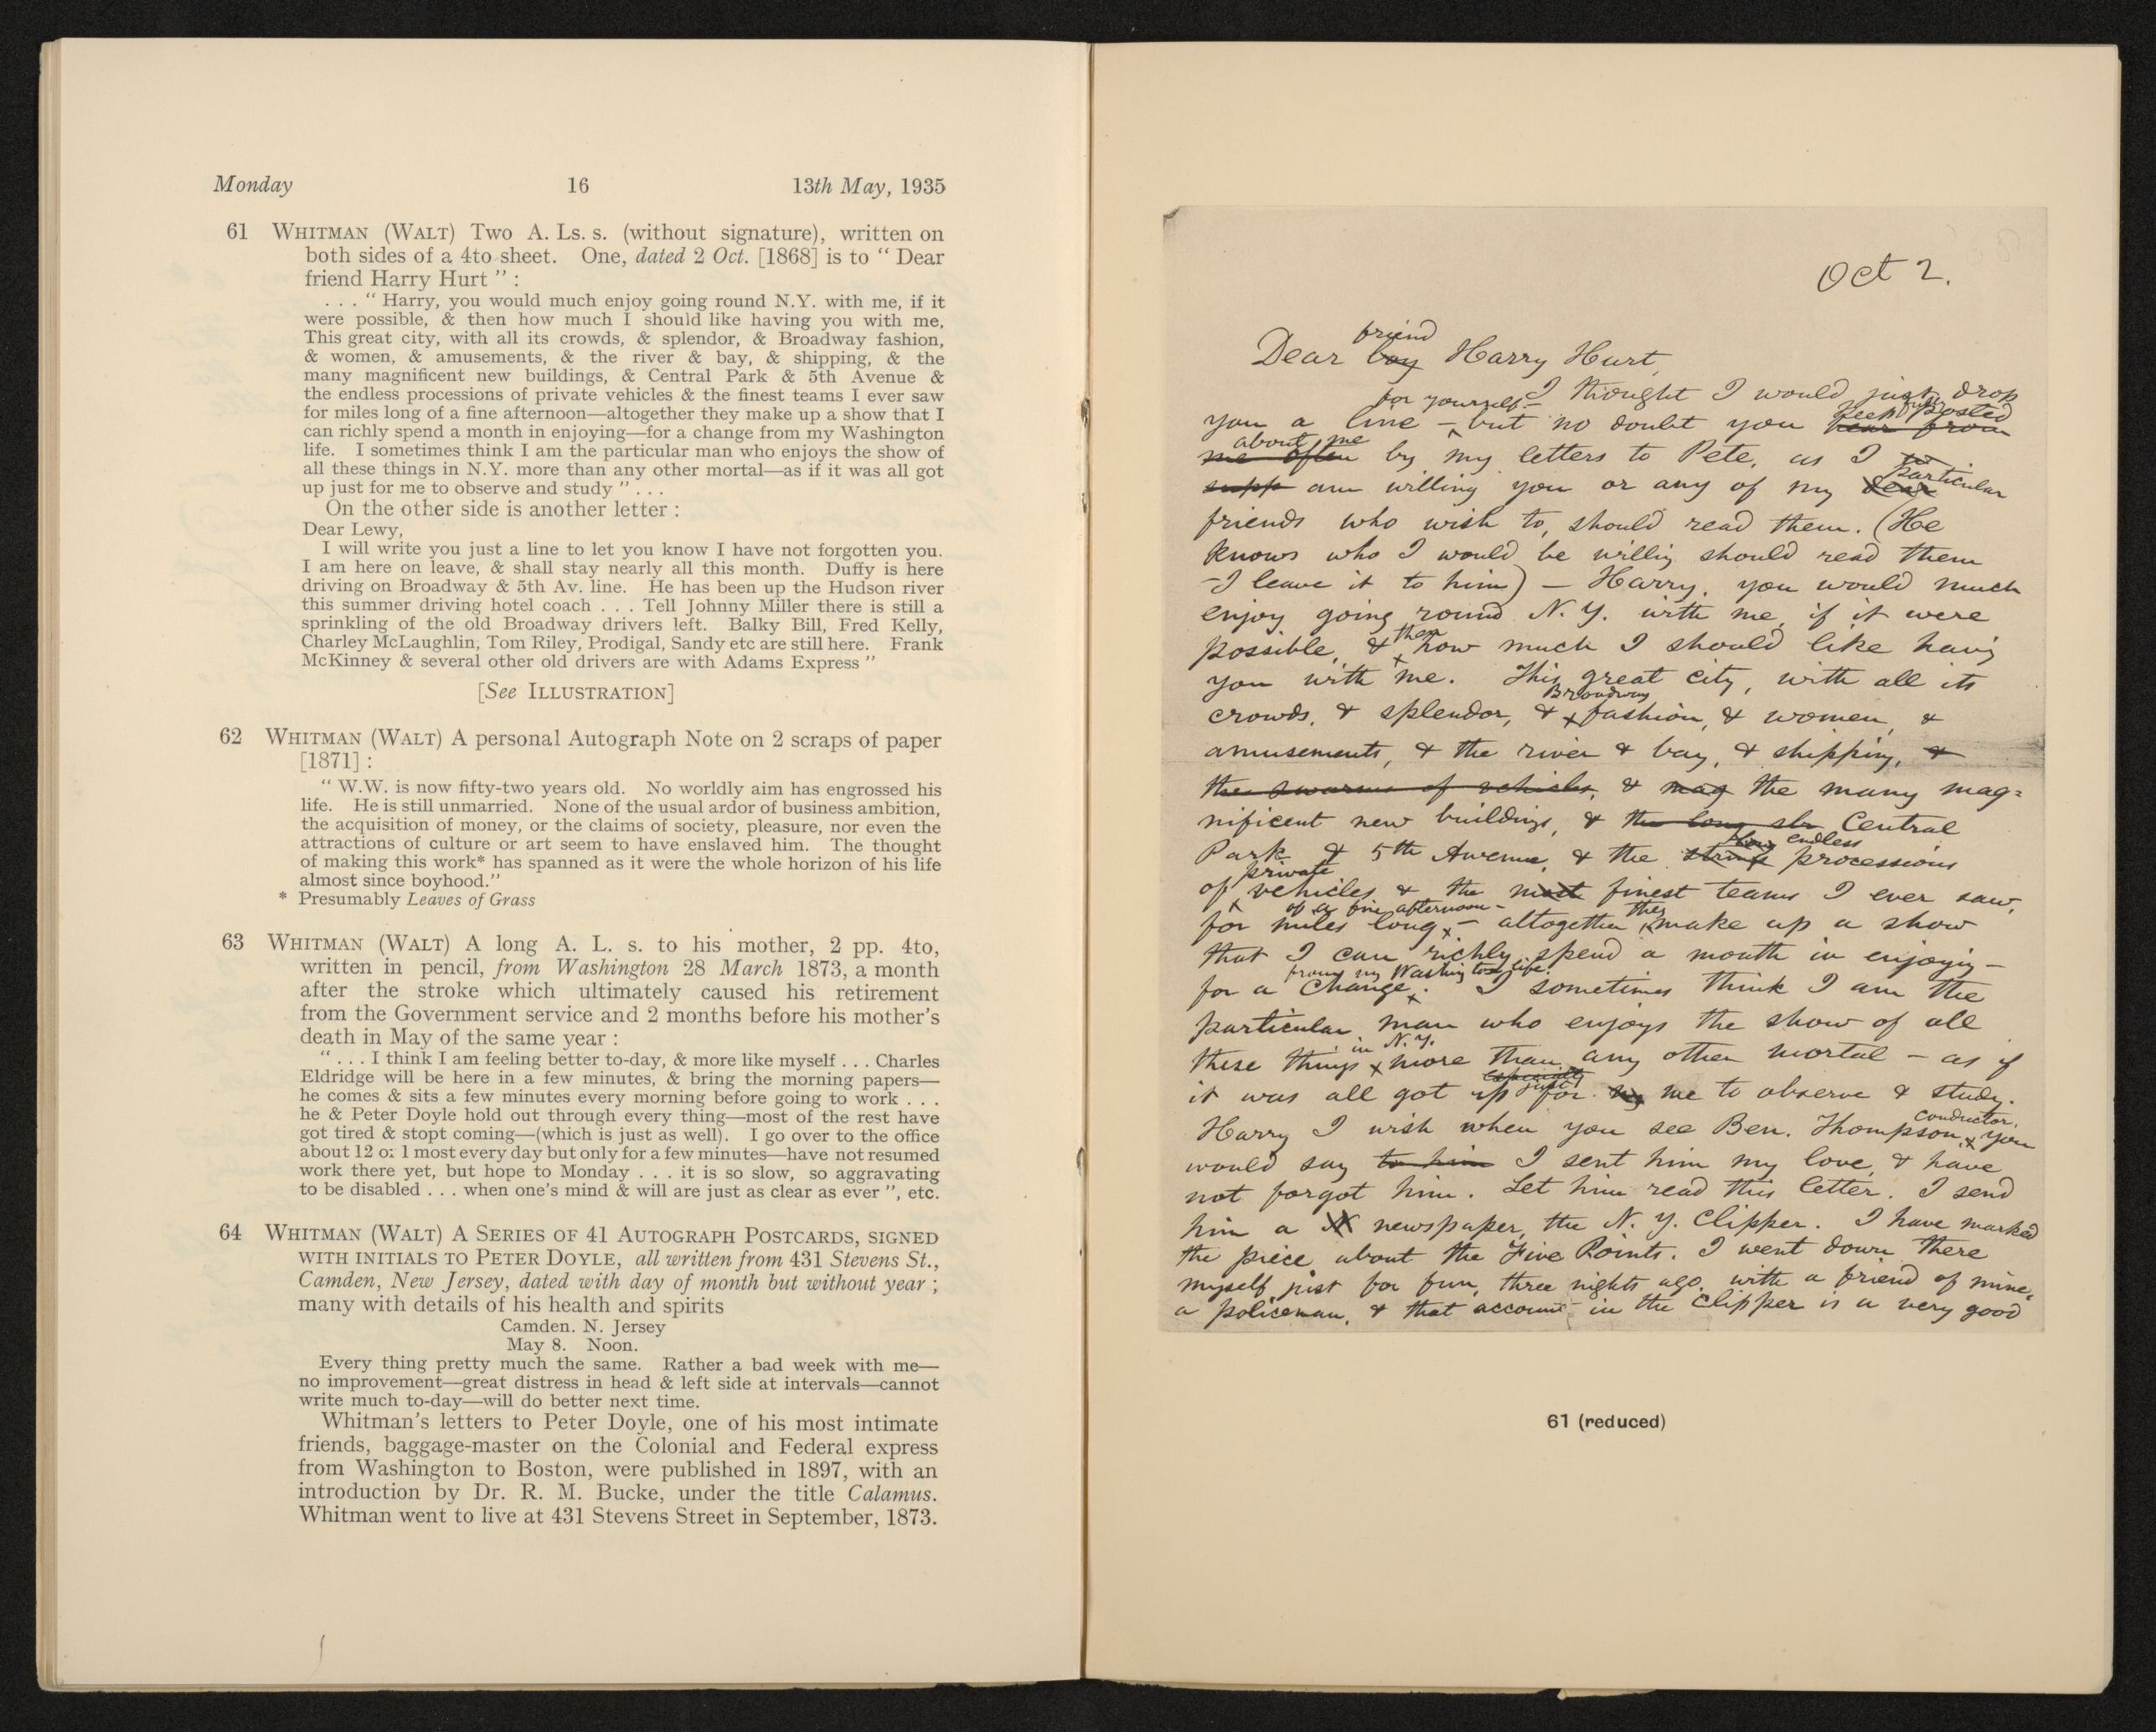 Monday 16 13th May, 1935
61 WHITMAN (WALT) Two A. Ls. s. (without signature), written on
both sides of a 4to sheet. One, dated 2 Oct. [1868] is to “ Dear
friend Harry Hurt ” :
. . . “ Harry, you would much enjoy going round N.Y. with me, if it
were possible, & then how much I should like having you with me.
This great city, with all its crowds, & splendor, & Broadway fashion,
& women, & amusements, & the river & bay, & shipping, & the
many magnificent new buildings, & Central Park & 5th Avenue &
the endless processions of private vehicles & the finest teams I ever saw
for miles long of a fine afternoon—altogether they make up a show that I
can richly spend a month in enjoying—for a change from my Washington
life. I sometimes think I am the particular man who enjoys the show of
all these things in N.Y. more than any other mortal—as if it was all got
up just for me to observe and study ” . . .
On the other side is another letter :
Dear Lewy,
I will write you just a line to let you know I have not forgotten you.
I am here on leave, & shall stay nearly all this month. Duffy is here
driving on Broadway & 5th Av. line. He has been up the Hudson river
this summer driving hotel coach . . . Tell Johnny Miller there is still a
sprinkling of the old Broadway drivers left. Balky Bill, Fred Kelly,
Charley McLaughlin, Tom Riley, Prodigal, Sandy etc are still here. Frank
McKinney & several other old drivers are with Adams Express ”
[See ILLUSTRATION]
62 WHITMAN (WALT) A personal Autograph Note on 2 scraps of paper
[1871] :
“ W.W. is now fifty-two years old. No worldly aim has engrossed his
life. He is still unmarried. None of the usual ardor of business ambition,
the acquisition of money, or the claims of society, pleasure, nor even the
attractions of culture or art seem to have enslaved him. The thought
of making this work* has spanned as it were the whole horizon of his life
almost since boyhood.”
* Presumably Leaves of Grass
63 WHITMAN (WALT) A long A. L. s. to his mother, 2 pp. 4to,
written in pencil, from Washington 28 March 1873, a month
after the stroke which ultimately caused his retirement
from the Government service and 2 months before his mother’s
death in May of the same year :
“ . . . I think I am feeling better to-day, & more like myself . . . Charles
Eldridge will be here in a few minutes, & bring the morning papers—
he comes & sits a few minutes every morning before going to work . . .
he & Peter Doyle hold out through every thing—most of the rest have
got tired & stopt coming—(which is just as well). I go over to the office
about 12 or 1 most every day but only for a few minutes—have not resumed
work there yet, but hope to Monday . . . it is so slow, so aggravating
to be disabled . . . when one’s mind & will are just as clear as ever ”, etc.
64 WHITMAN (WALT) A SERIES OF 41 AUTOGRAPH POSTCARDS, SIGNED
WITH INITIALS TO PETER DOYLE, all written from 431 Stevens St.,
Camden, New Jersey, dated with day of month but without year ;
many with details of his health and spirits
Camden. N. Jersey
May 8. Noon.
Every thing pretty much the same. Rather a bad week with me—
no improvement—great distress in head & left side at intervals—cannot
write much to-day—will do better next time.
Whitman’s letters to Peter Doyle, one of his most intimate
friends, baggage-master on the Colonial and Federal express
from Washington to Boston, were published in 1897, with an
introduction by Dr. R. M. Bucke, under the title Calamus.
Whitman went to live at 431 Stevens Street in September, 1873.
Oct 2.
friend
Dear boy Harry Hurt,
I thought I would just drop
for yourself— keep posted
you a line — but no doubt you hear from
about me
me often by my letters to Pete, as I
particular
supp am willing you or any of my dear
friends who wish to, should read them. (He
knows who I would be willig should read them
—I leave it to him) — Harry, you would much
enjoy going round N. Y. with me, if it were
then
possible, & how much I should like havig
you with me. This great city, with all its
Broadway
crowds, & splendor, & fashion, & women, &
amusements, & the river & bay, & shipping, &
the swarms of vehicles, & mag the many mag=
nificent new buildings, & the long str Central
long endless
Park & 5th Avenue, & the strings processions
private
of vehicles & the most finest teams I ever saw,
of a fine afternoon— they
for miles long — altogether make up a show
that I can richly spend a month in enjoyig —
from my Washington life.
for a change. I sometimes think I am the
particular man who enjoys the show of all
in N.Y.
these things more than any other mortal — as if
especially
just
it was all got up for my me to observe & study.
conductor,
Harry I wish when you see Ben. Thompson, you
would say to him I sent him my love, & have
not forgot him. Let him read this letter. I send
him a N newspaper, the N. Y. Clipper. I have marked
the piece about the Five Points. I went down there
myself just for fun, three nights ago, with a friend of mine,
a policeman, & that account in the Clipper is a very good
61 (reduced)